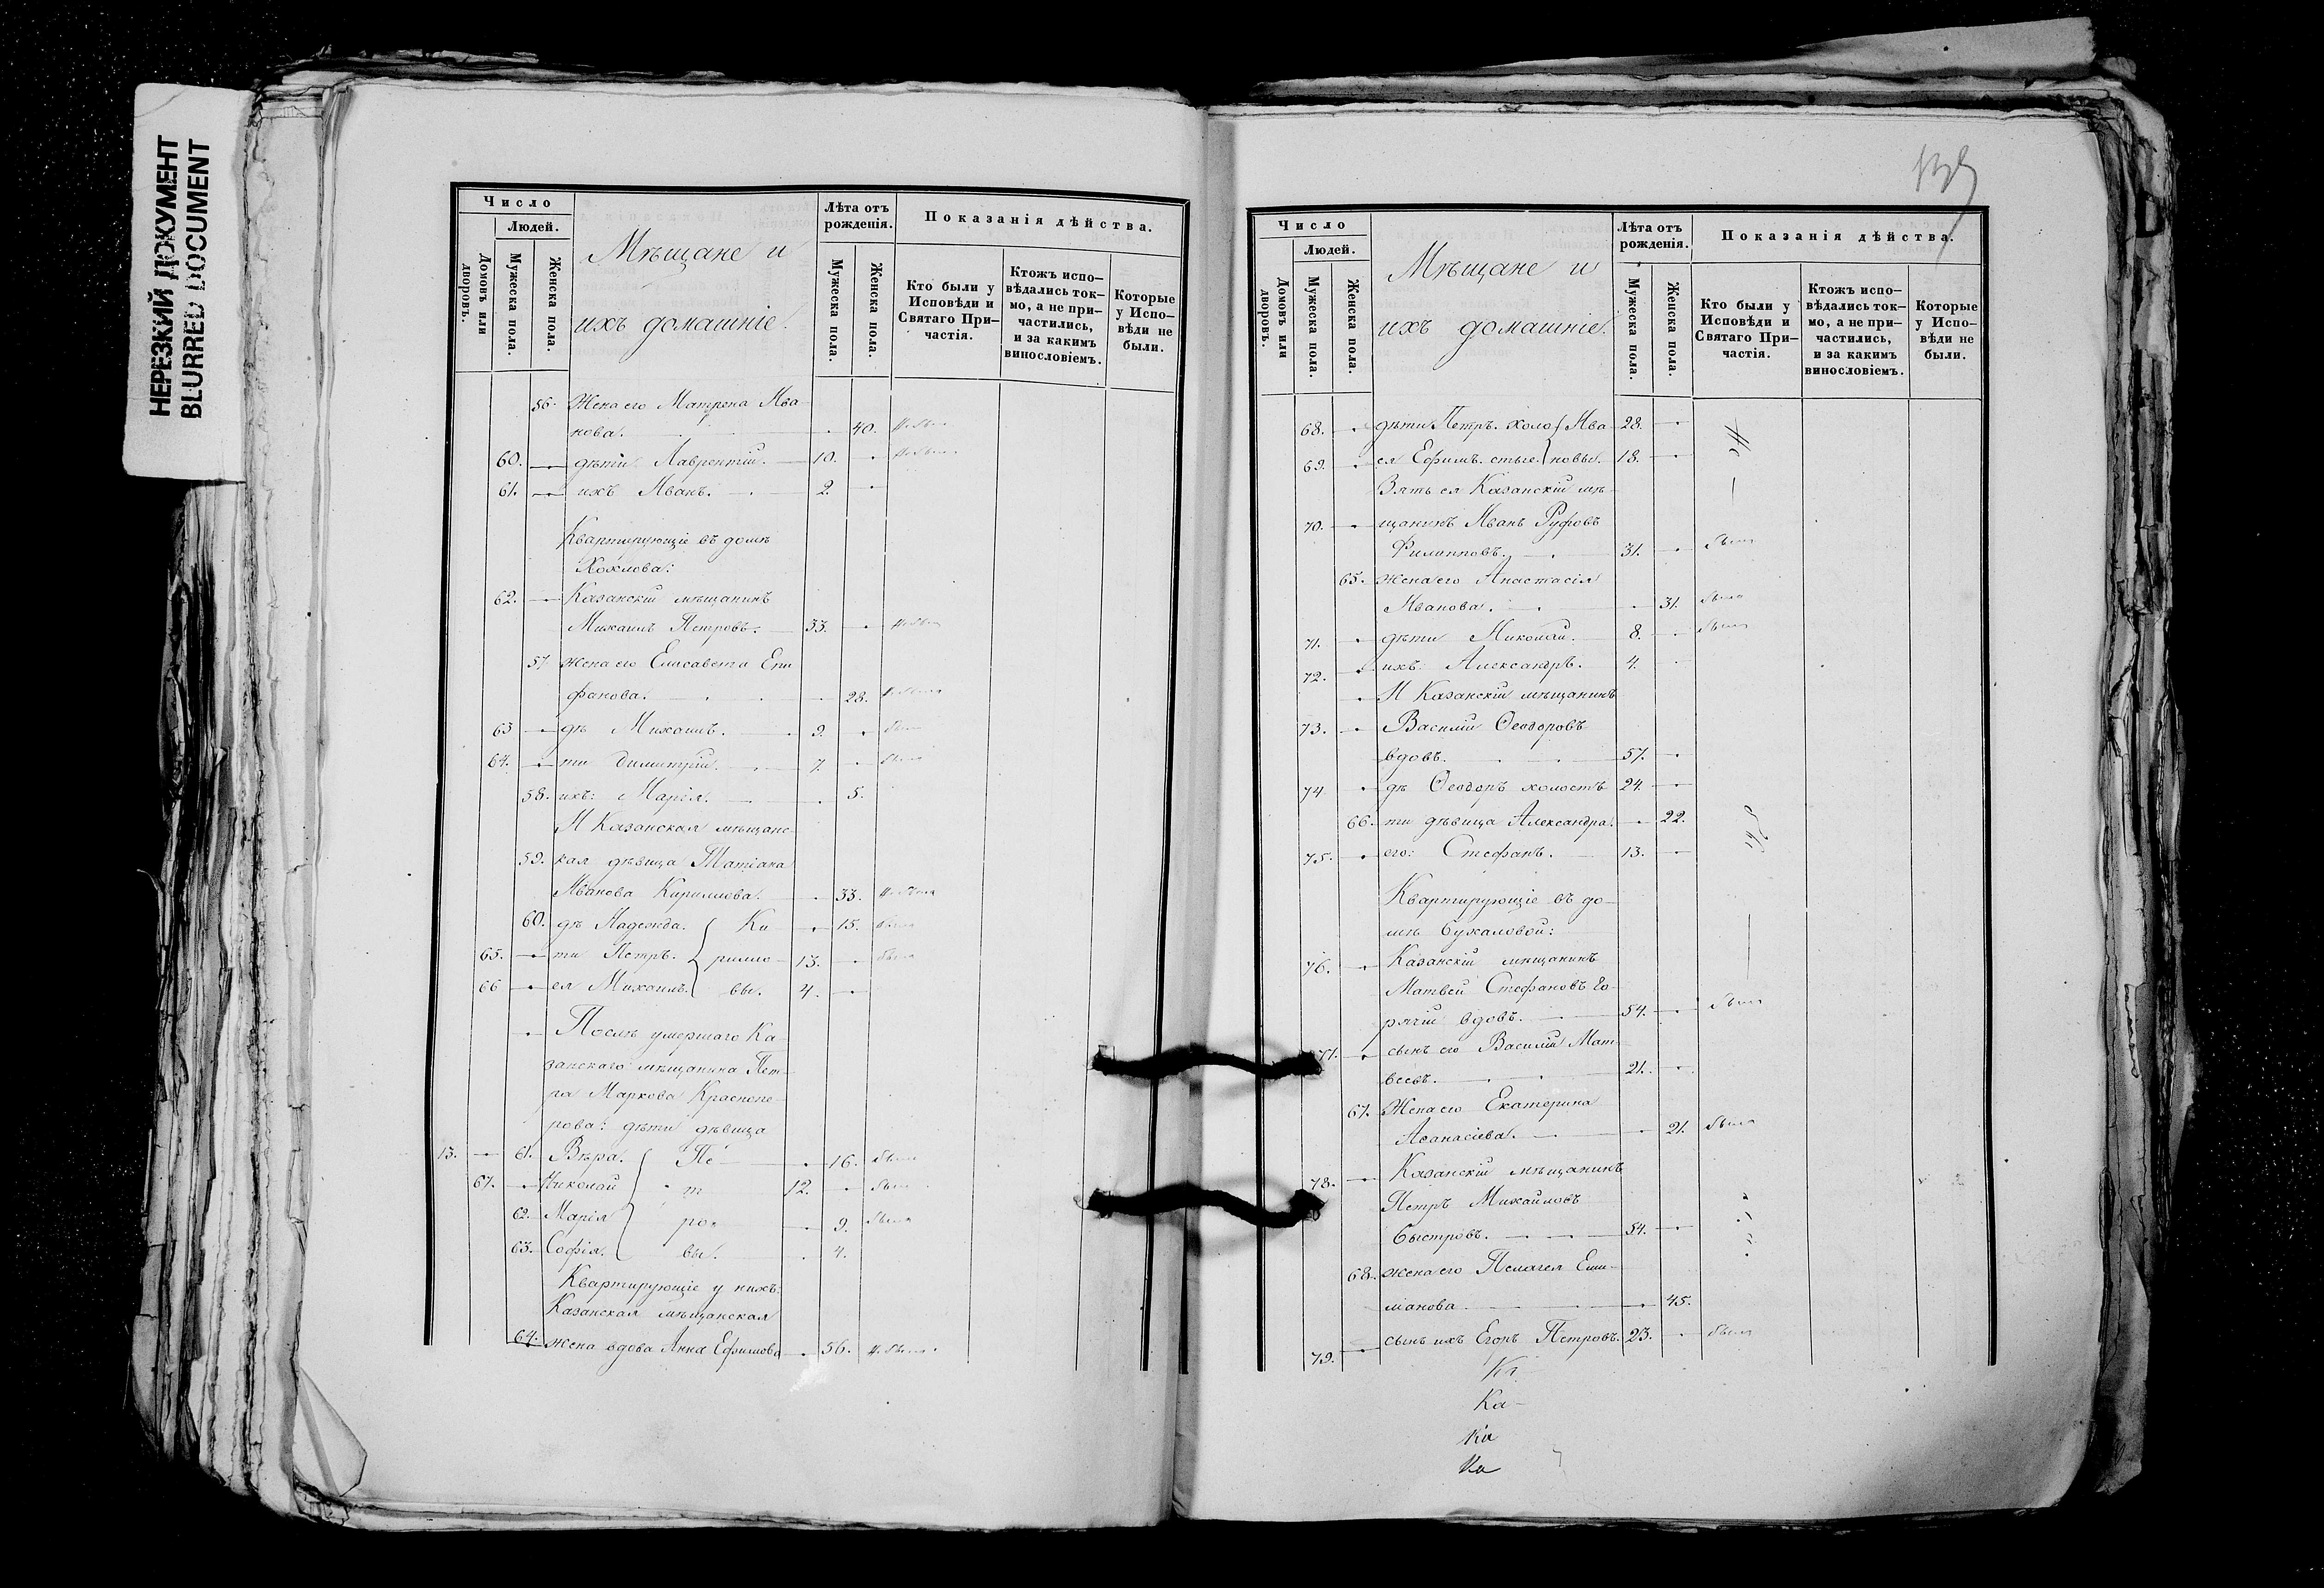 НЕРЕЗКИЙ ДОКУМЕНТ
BLURRED DOCUMENT
Число
Людей.
Домовъ или дворовъ.
Мужеска пола.
Женска пола.
Мѣщане и
ихъ домашніе.
Лѣта отъ рожденія.
Мужеска пола.
Женска пола.
Показанія дѣйства.
Кто были у Исповѣди и Святаго При-частія.
Ктожъ испо-вѣдались ток-мо, а не при-частились, и за какимъ винословіемъ.
Которые у Испо-вѣди не были.
56. Жена его Матрена Ива
нова. 40. И. была
60. дѣти Лаврентій. 10.
61. ихъ Иванъ. 2.
Квартирующіе въ домѣ
Хохлова:
62. Казанскій мѣщанинъ
Михаилъ Петровъ. 33.
57. жена его Елисавета Епи
фанова. 28.
63 дѣ Михаилъ. 9. былъ
64. ти Димитрій. 7. былъ
58. ихъ: Марія. 5.
И Казанская мѣщанс-
59. кая дѣвица Татіана
Иванова Кириллова. 33.
60. дѣ Надежда. Ки 15. была
65. ти Петръ. рилло 13. былъ
66 ея Михаилъ. вы. 4.
Послѣ умершаго Ка-
занскаго мѣщанина Пет-
ра Маркова Краснопе-
рова: дѣти дѣвица
13. 61. Вѣра. Пе 16. была
67. Николай т 12. былъ
62. Марія ро 9. была
63. Софія. вы. 4.
Квартирующіе у нихъ:
Казанская мѣщанская
64. жена вдова Анна Ефимова 56.
Число
Людей.
Домовъ или дворовъ.
Мужеска пола.
Женска пола.
Мѣщане и
ихъ домашніе.
Лѣта отъ рожденія.
Мужеска пола.
Женска пола.
Показанія дѣйства.
Кто были у Исповѣди и Святаго При-частія.
Ктожъ испо-вѣдались ток-мо, а не при-частились, и за какимъ винословіемъ.
Которые у Испо-вѣди не были.
68. дѣти Петръ. холо Ива 28.
69. ея Ефимъ. стые. новы. 18.
Зять ея Казанскій мѣ-
70. щанинъ Иванъ Руфовъ
Филипповъ. 31. былъ
65. жена его Анастасія
Иванова. 31. была
71. дѣти Николай. 8. былъ
72. ихъ: Александръ. 4.
И Казанскій мѣщанинъ
73. Василій Ѳеодоровъ
вдовъ. 57.
74 дѣ Ѳеодоръ холостъ 24.
66. ти дѣвица Александра. 22.
75. его: Стефанъ. 13.
Квартирующіе въ до-
мѣ Букаловой:
76. Казанскій мѣщанинъ
Матвей Стефановъ Го-
рячій вдовъ. 54. былъ
77. сынъ его Василій Мат-
веевъ. 21.
67. Жена его Екатерина
Аѳанасіева. 21. была
78. Казанскій мѣщанинъ
Петръ Михайловъ
Быстровъ. 54.
68. жена его Пелагея Еми-
ліанова 45.
79. сынъ ихъ Егоръ Петровъ. 23. былъ
Ка
Ка
Ка
Ка